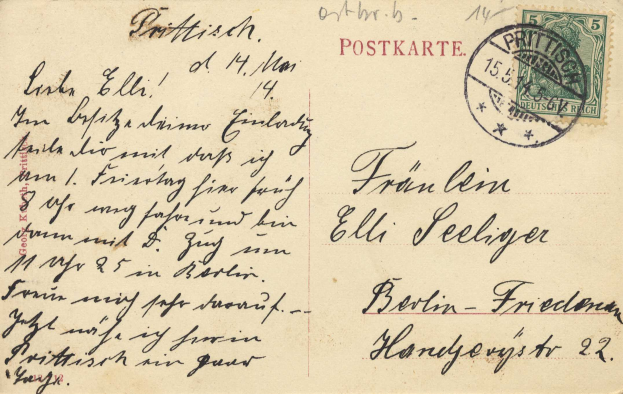 Prittisch.
d. 14. Mai
14.
Liebe Elli!
Im Besitze deiner Einladung
teile dir mit daß ich
am 1. Feiertag hier früh
8 Uhr weg fahre und bin
dann mit D. Zug um
11 Uhr 25 in Berlin.
Freue mich sehr darauf. --
Jetzt nähe ich hier in
Prittisch ein paar
Tage.
ostbr. b.
14-
POSTKARTE.
5 5
DEUTSCHES REICH
PRITTISCH
15.5.14.
* * *
Fräulein
Elli Seeliger
Berlin - Friedenau
Handjerystr 22.
Georg